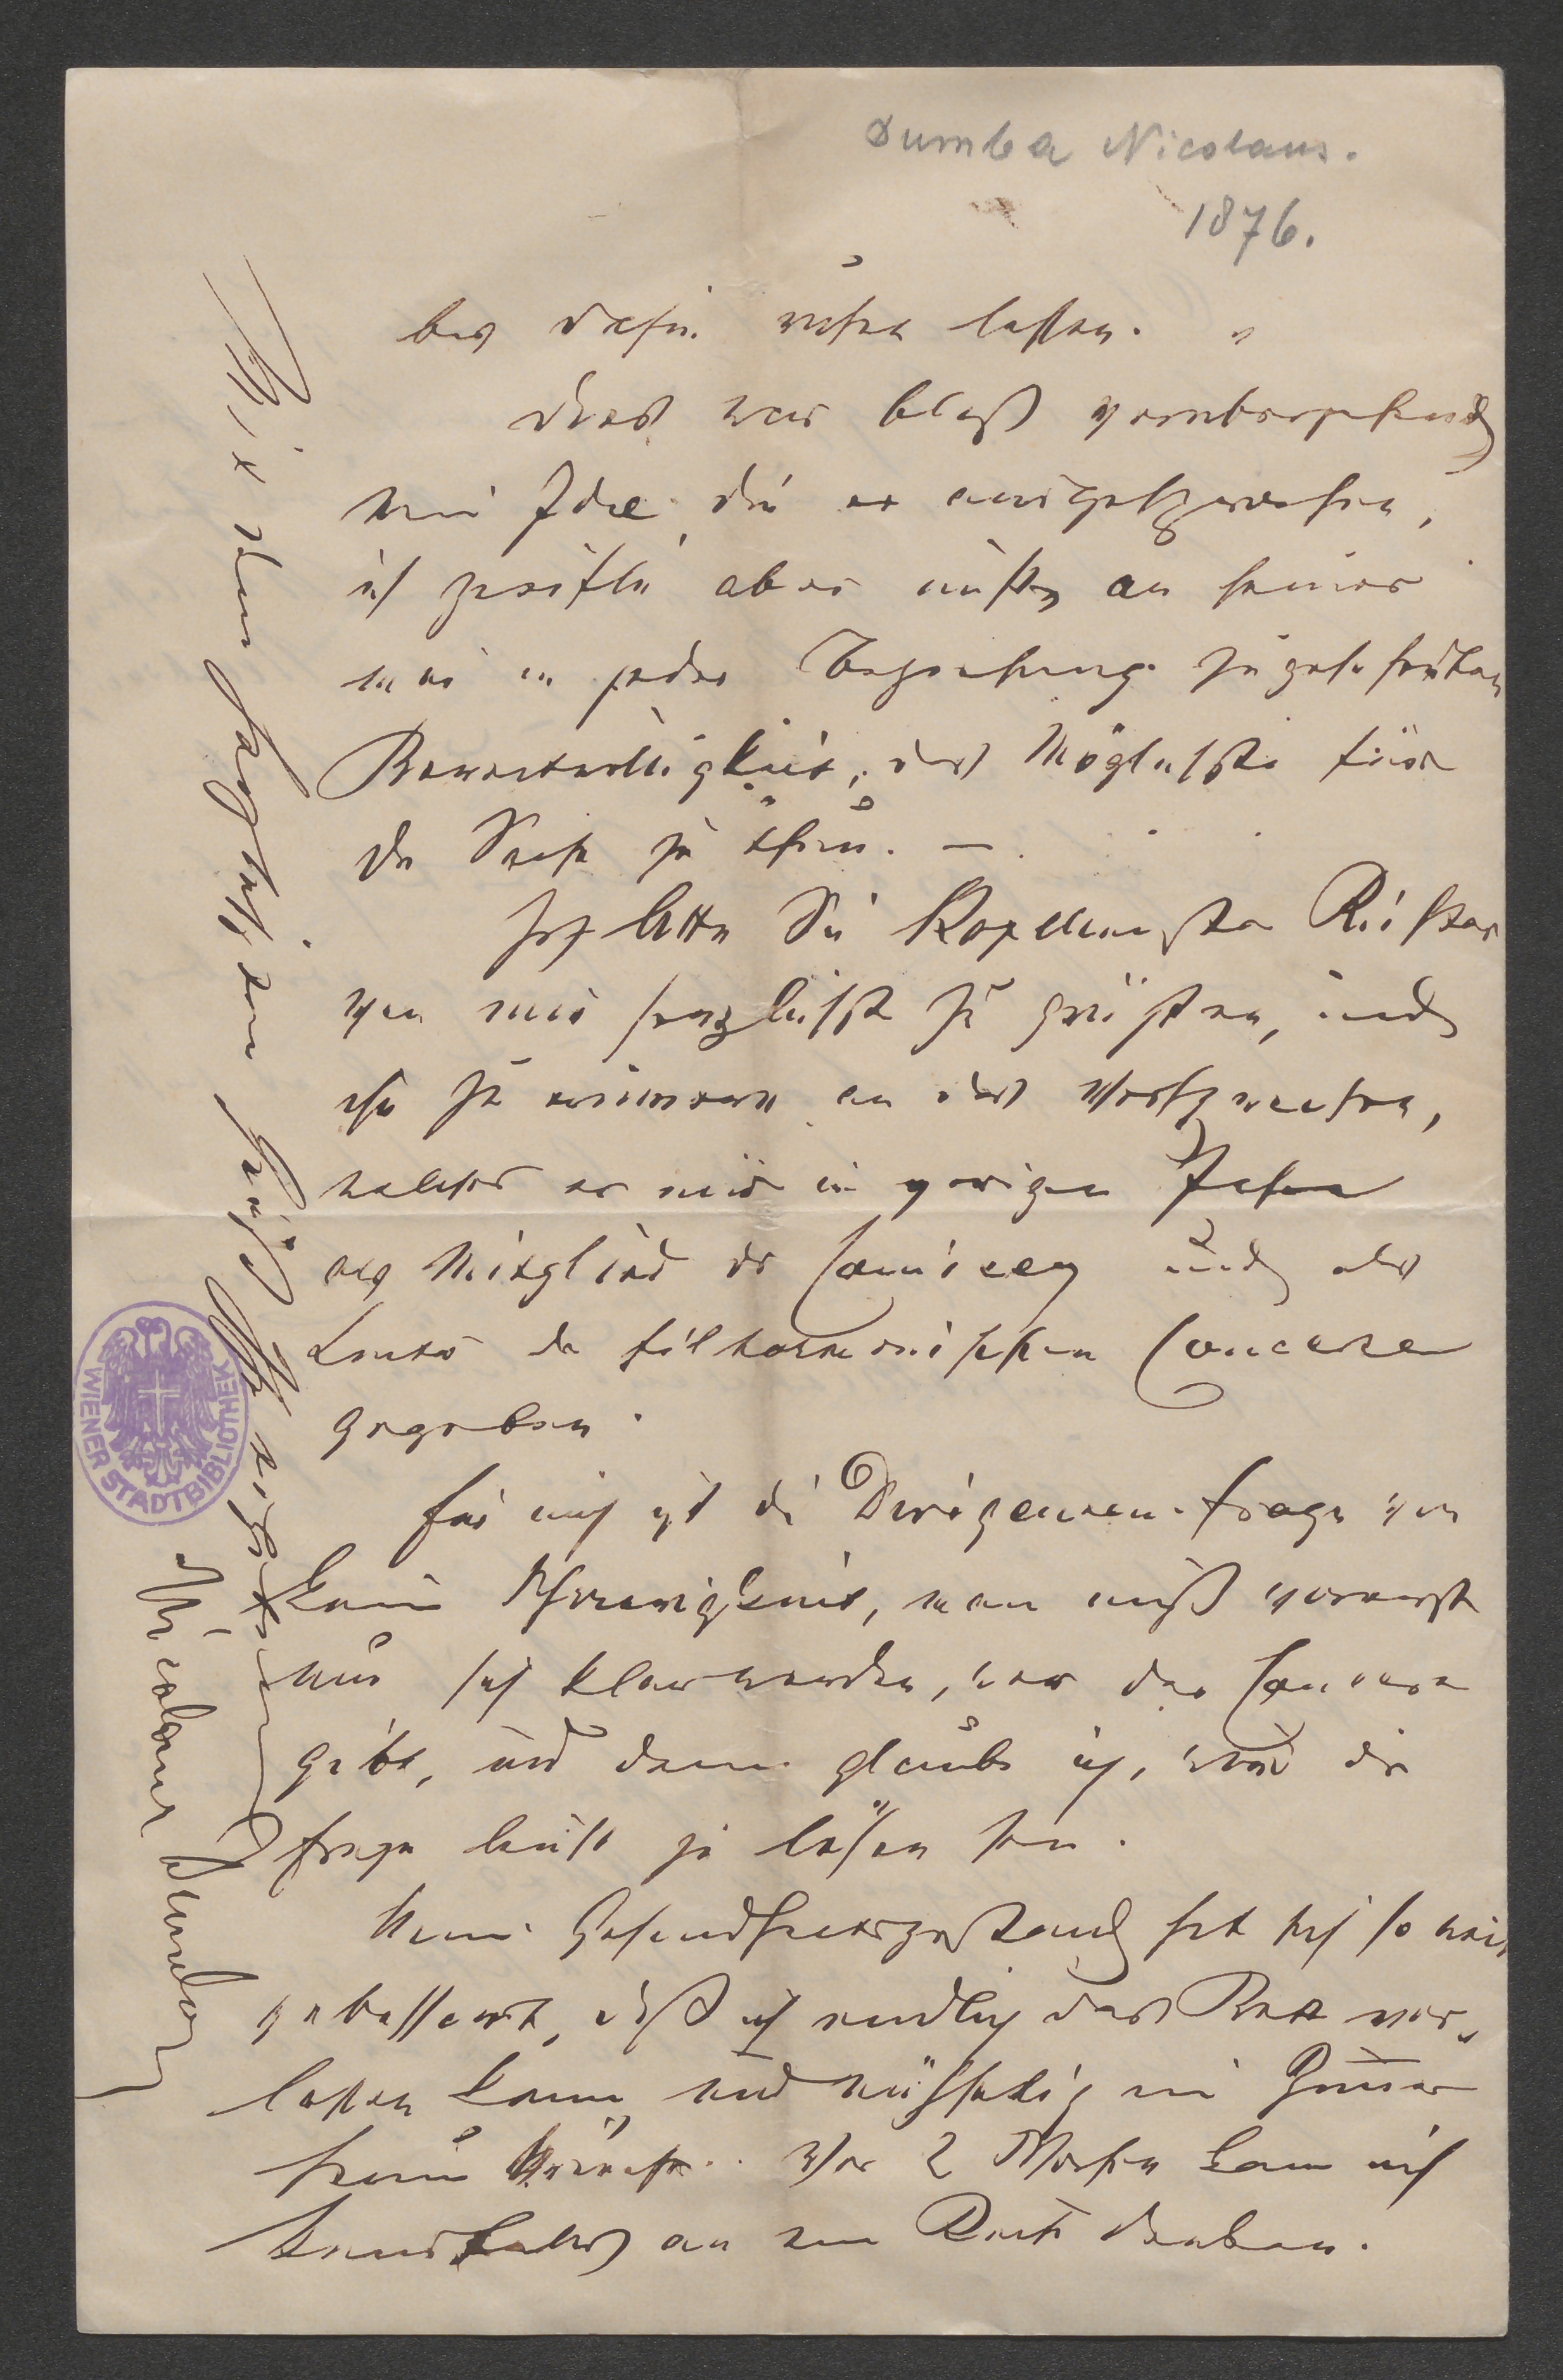 Dumba Nicolaus.
1876.
bis dahin ruhen lassen.
Dies war bloß vorübergehend
eine Idee die er ausgesprochen,
ich zweifle aber nicht an seiner
mir in jeder Beziehung zugesicherten
Bereitwilligkeit, das Möglichste für
die Sache zu thun. —
Ich bitte Sie Kapellmeister Richter
von mir herzlichst zu grüßen, und
ihn zu erinnern an das Versprechen,
welches er mir im vorigen Jahre
als Mitglied des Comités und als
Leiter der filharmonischen Concerte
gegeben.
Für mich ist die Dirigenten-frage von
keiner Schwierigkeit, man muß vorerst
nur sich klar werden, wer das Concert
gibt, und dann glaube ich, wird die
frage leicht zu lösen sein.
Mein Gesundheitszustand hat sich so weit
gebessert, daß ich endlich das Bett ver-
lassen kann und mühselig im Zimmer
herum. Vor 2 Wochen kann ich
keinesfalls an eine Reise denken.
Mit den herzlichsten Grüßen Ihr ergebenster
Nicolaus Dumba
WIENER STADTBIBLIOTHEK